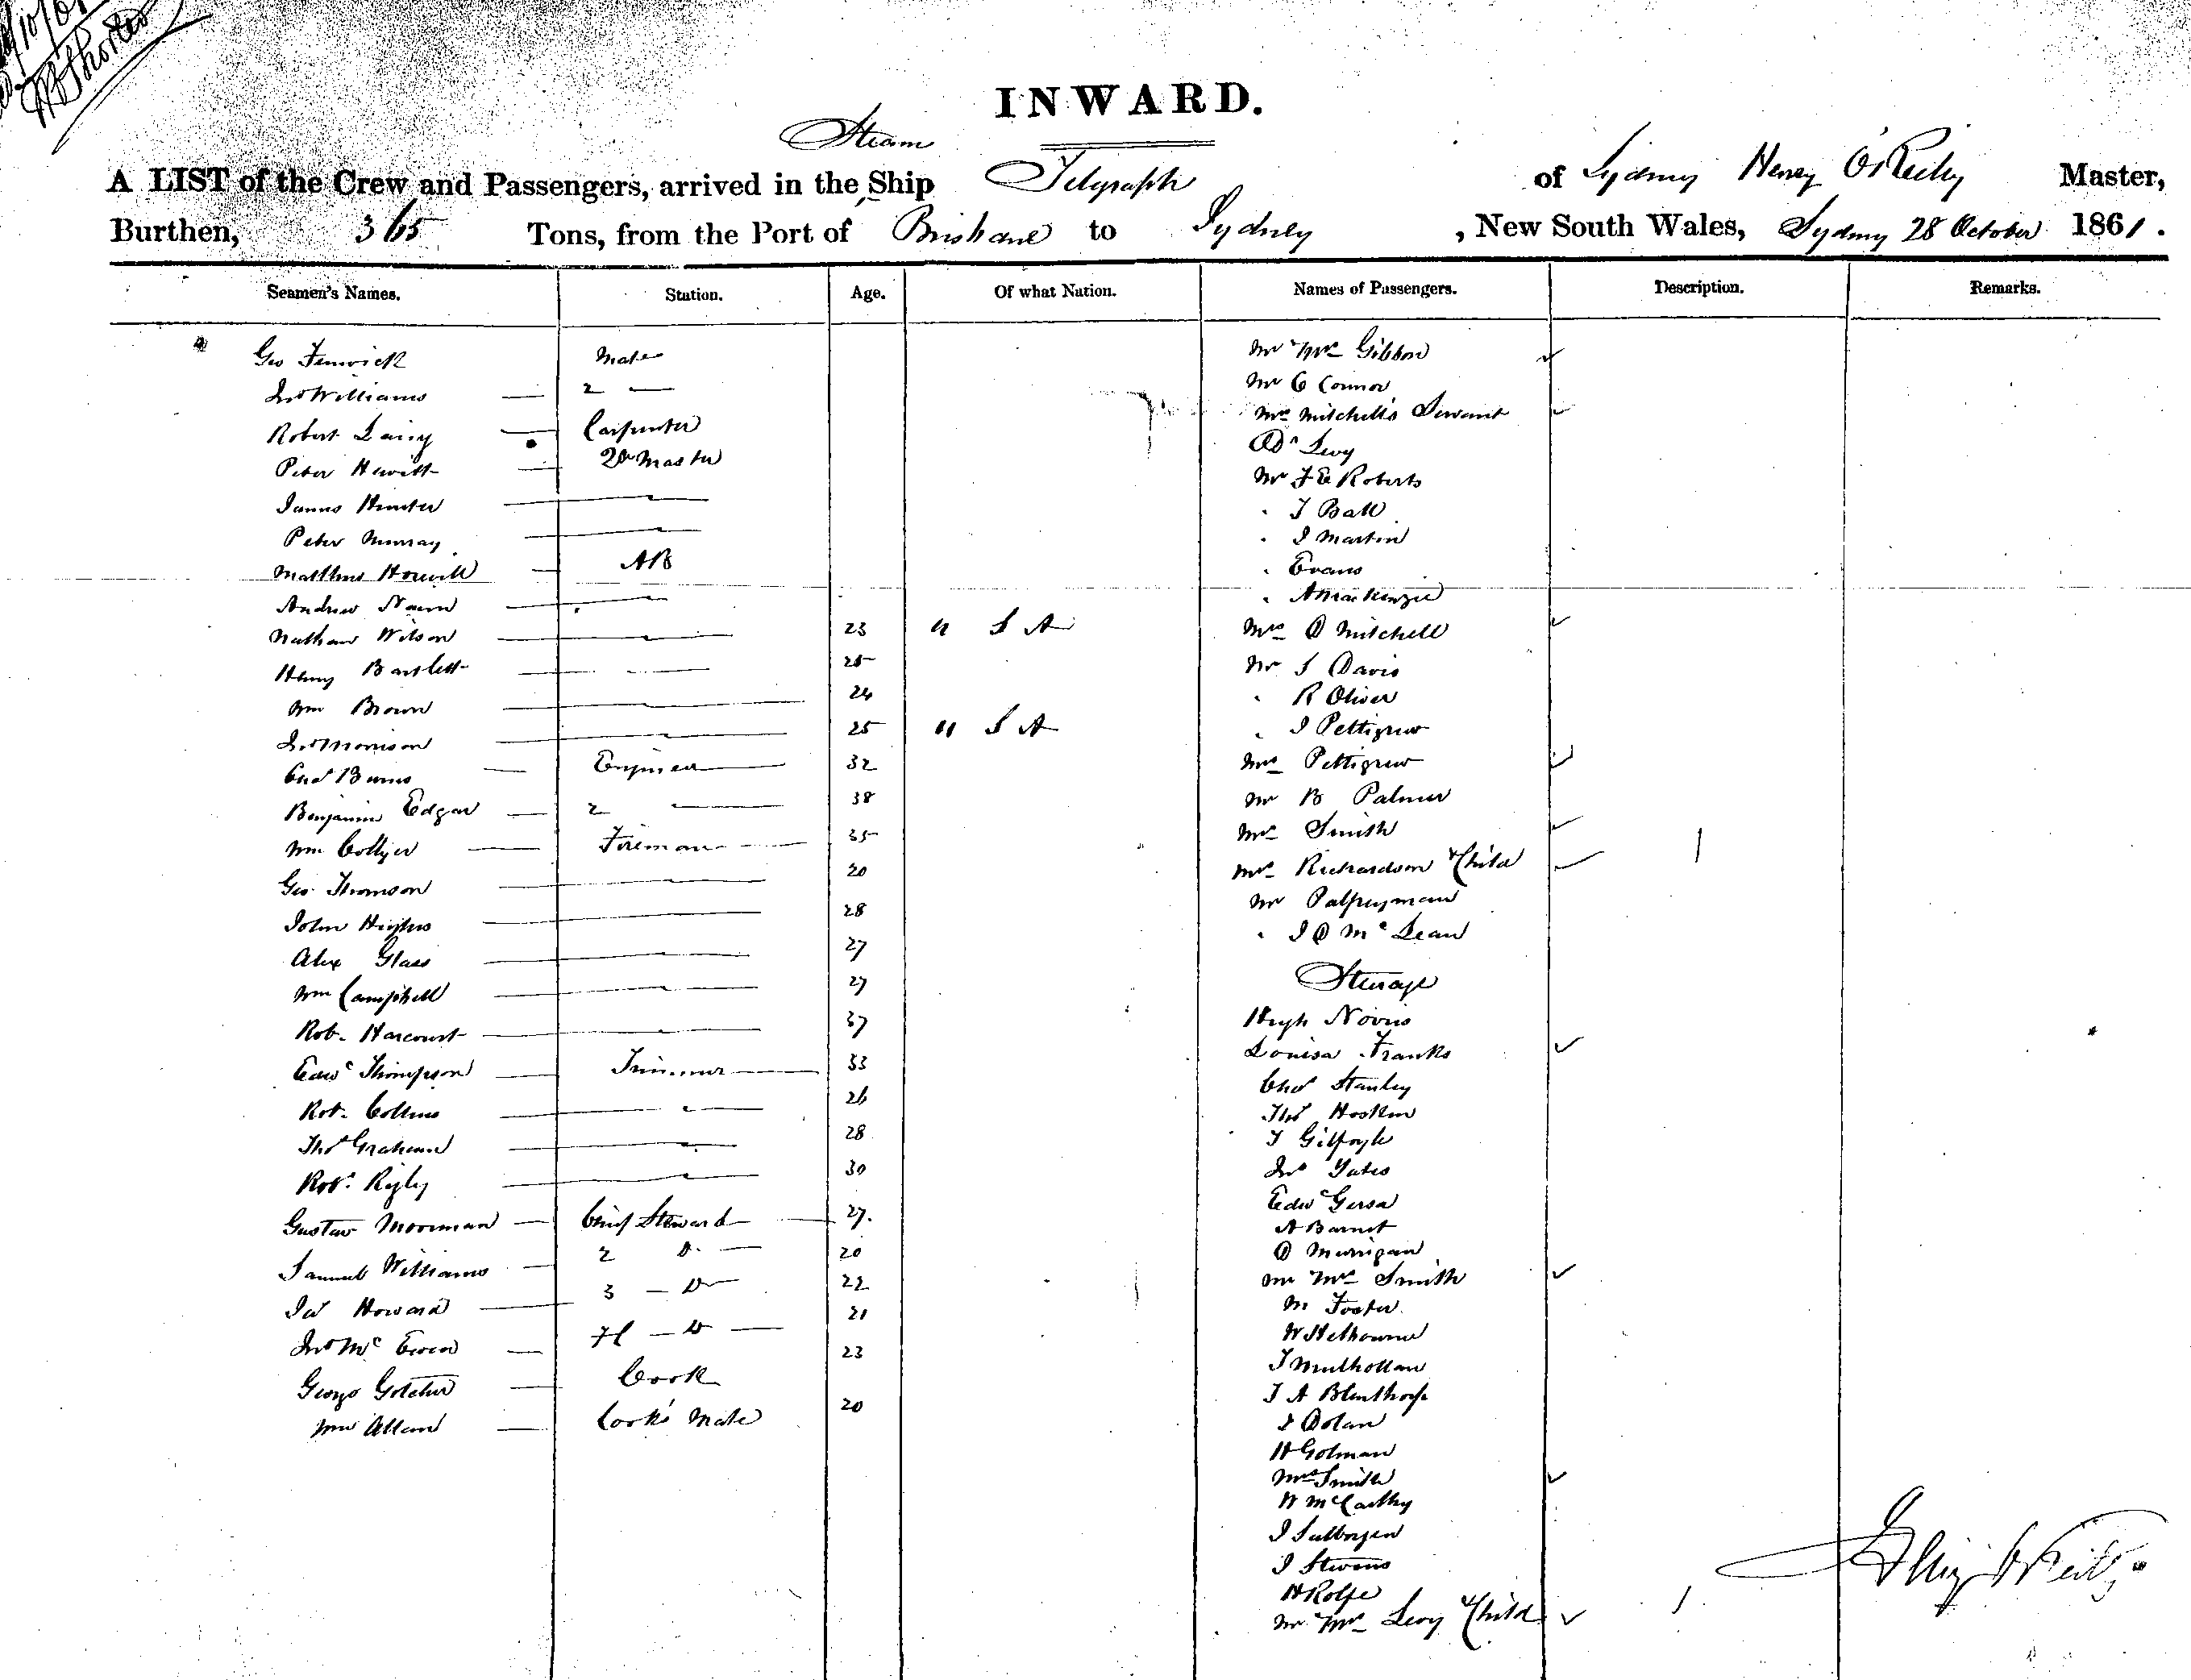 INWARD.
Steam
A LIST of the Crew and Passengers, arrived in the Ship Telegraph of Sydney Henry O'Reilly Master,
Burthen, 365 Tons, from the Port of Brisbane to Sydney , New South Wales, Sydney 28 October 1861.
Seamen's Names. Station. Age. Of what Nation. Names of Passengers. Description. Remarks.
Geo Fenwick Mate
Jno Williams — 2 —
Robert Laing — Carpenter
Peter Hewitt — 2r Master
James Hunter
Peter Murray
Matthew — AB
Andrew Nairn
Nathan Wilson 23 U S A
Henry Bartlett 25
Wm Brown 24
Jno Morrison 25 U S A
Chas Burns — Engineer 32
Benjamin Edgar — 2 — 38
Wm Collyer — Fireman 35
Geo Thomson 20
John Hughes 28
Alex Glass 27
Wm Campbell 27
Rob. Harcourt 37
Edwd Thompson — Trimmer 33
Robt Collins 26
Thos Graham 28
Robt Rigby 30
Gustav Moorman — Chief Steward 27.
Samuel Williams — 2 D. — 20
Jas Howard — 3 — D 22
Jno McEwen — D — 21
George — Cook 23
Wm Allan — Cook's Mate 20
Mr Mrs Gibbon
Mr C Connor
Mrs Mitchell's Servant
Dr Levy
Mr F E Roberts
" T Ball
" J Martin
" Evans
" A Mackenzie
Mrs D Mitchell
Mr S Davis
" R Oliver
" J Pettigrew
Mrs Pettigrew
Mr B Palmer
Mrs Smith
Mrs Richardson & Child 1
Mr Palfreyman
" J D McLean
Steerage
Hugh Norris
Louisa Franks
Chas Stanley
Thos Hosken
T Gilfoyle
Jno Yates
Edwd Gersa
A Barnet
D Murrigan
Mr Mrs Smith
M Foster
W
T Mulhollan
T A Blenthorp
J Dolan
H Golman
Mrs Smith
W McCarthy
J
J Stevens
H Rolfe
Mr Mrs Levy & Child 1